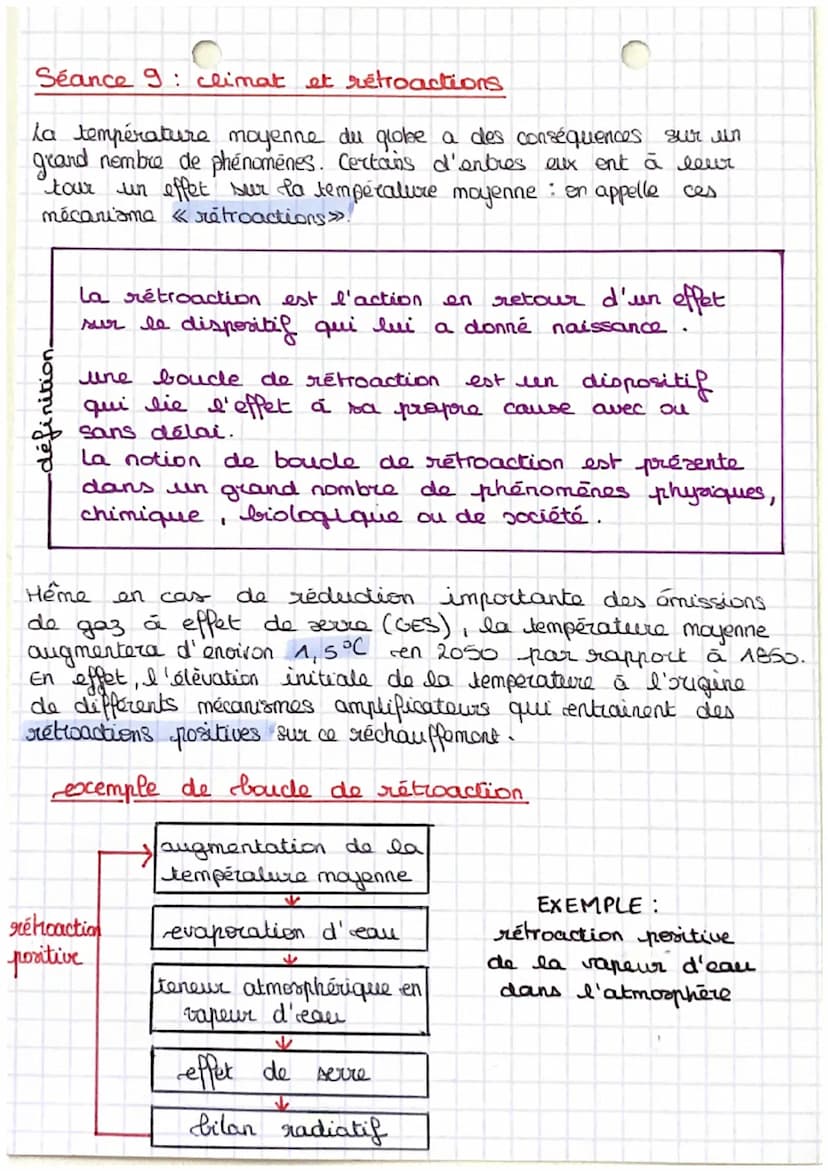 Séance 9 : climat et rétroactions
La température moyenne du globe a des conséquences sur un
grand nombre de phénomènes. Certains d'entres eux ont à leur
tour un effet sur la température moyenne : on appelle ces
mécanisme « rétroactions ».
définition
La rétroaction est l'action en retour d'un effet
sur le dispositif qui lui a donné naissance .
une boucle de rétroaction est un dispositif
qui lie l'effet à sa propre cause avec ou
sans délai.
La notion de boucle de rétroaction est présente
dans un grand nombre de phénomènes physiques,
chimique , biologique ou de société .
Même en cas de réduction importante des émissions
de gaz à effet de serre (GES), la température moyenne
augmentera d'environ 1,5°C en 2050 par rapport à 1850.
En effet, l'élévation initiale de la température à l'origine
de différents mécanismes amplificateurs qui entrainent des
rétroactions positives sur ce réchauffement .
exemple de boucle de rétroaction
augmentation de la
température moyenne
evaporation d'eau
teneur atmosphérique en
vapeur d'eau
effet de serre
bilan radiatif
rétroaction
positive
EXEMPLE :
rétroaction positive
de la vapeur d'eau
dans l'atmosphère